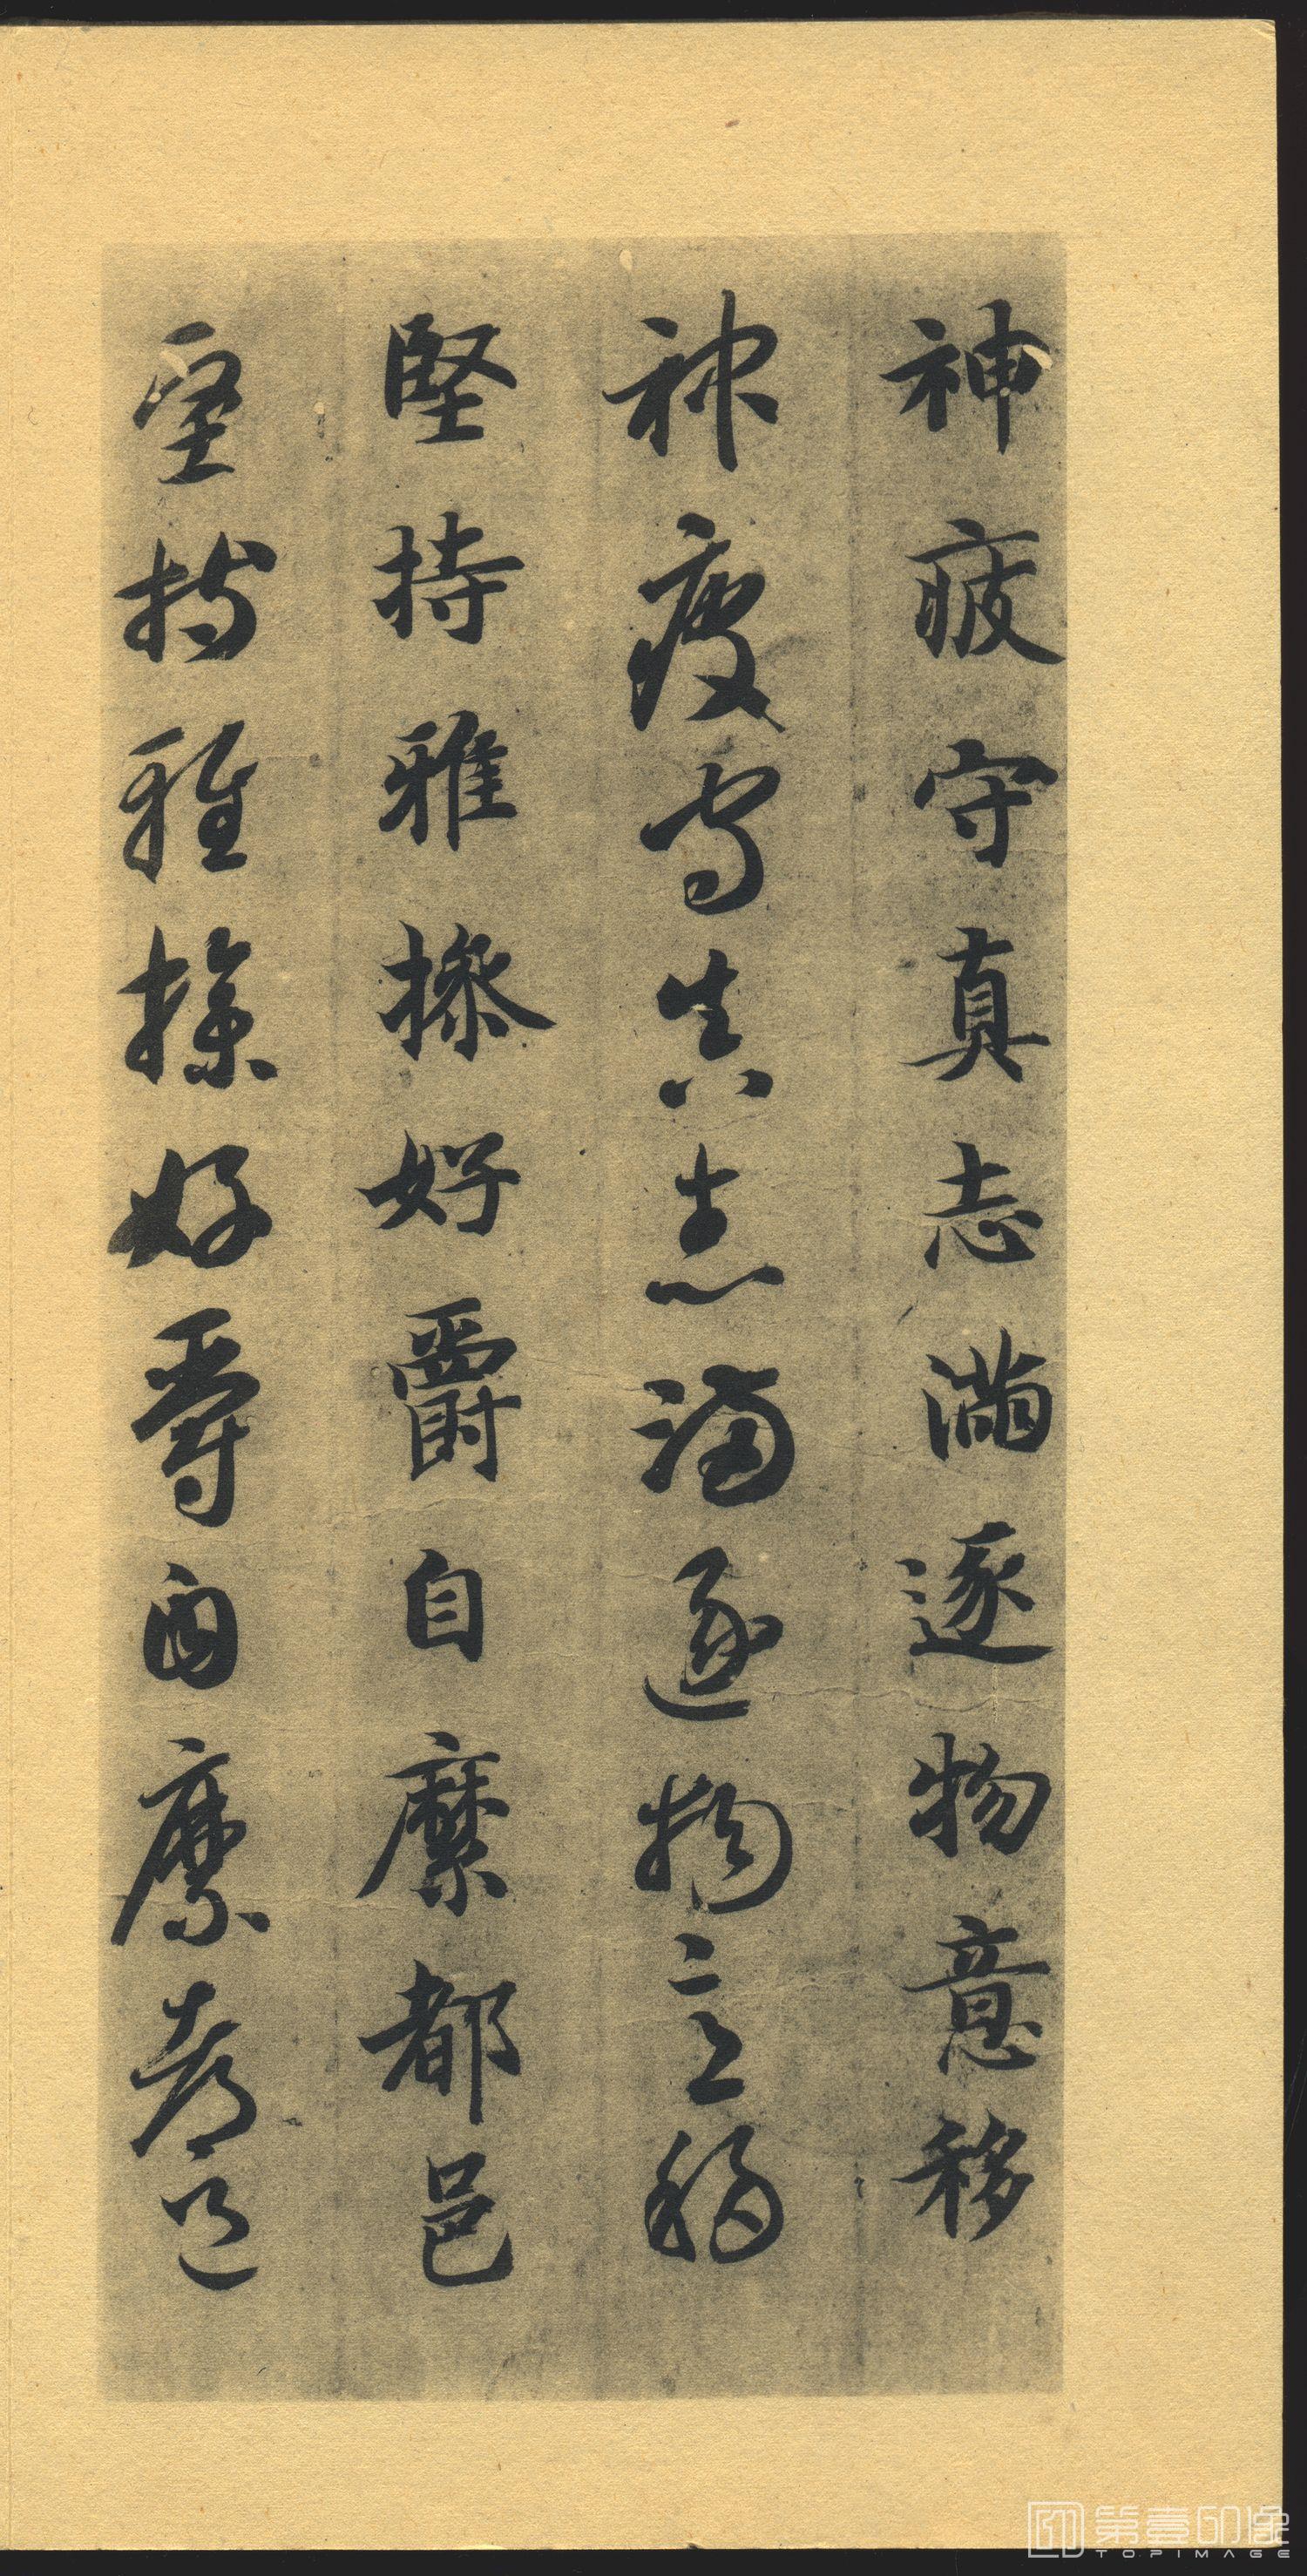 神疲守真志滿逐物意移
神疲守真志滿逐物意移
堅持雅操好爵自縻都邑
堅持雅操好爵自縻都邑
第壹印像
TOPIMAGE